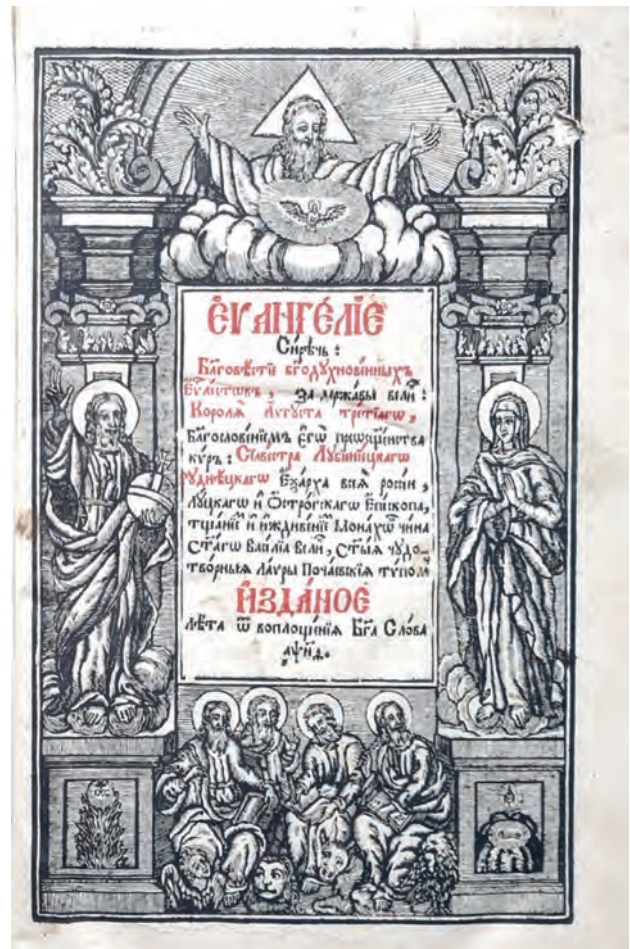 ЕѴАНГЕ́ЛІЕ
Си́рѣчь :
Бл҃говѣ́стїе бг҃одꙋхнове́нныхъ
Еѵ҃лі́стѡвъ , за держа́вы вели́ :
Короля̀ А́ѵгꙋста тре́тїагѡ ,
Бл҃гослове́нїемъ Є҆гѡ̀ преѡсщ҃е́нства
кѵ́ръ : Сїлве́стра Лꙋбїни́ецкагѡ
рꙋдни́цкагѡ Е҆ѯа́рха всея̀ росі́и ,
Лꙋ́цкагѡ и҆ Ѻ҆стро́гскагѡ Е҆пі́скопа ,
тща́нїе и҆ и҆ждиве́нїе Мона́хѡⷡ чи́на
Ст҃а́гѡ Васі́лїа Вели́ , Ст҃ы́ѧ чꙋдо-
тво́рныѧ ла́ѵры Поча́евскїѧ тѵпо́ⷨ
И҆ЗДА́НОЕ
лѣ́та ѿ воплоще́нїѧ Бг҃а Сло́ва